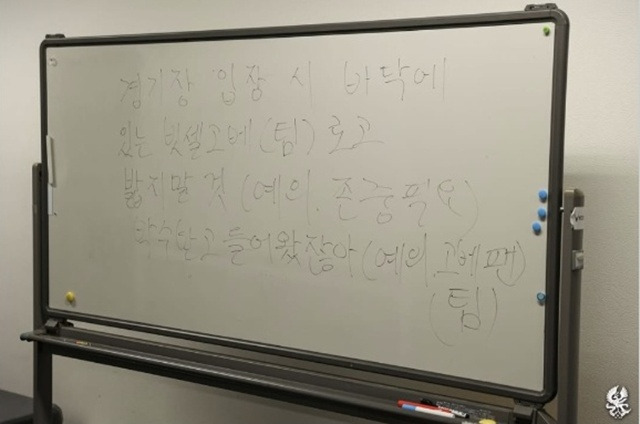 경기장 입장 시 바닥에
있는 빗셀고베(팀) 로고
밟지말 것 (예의, 존중필요)
박수받고 들어왔잖아(예의, 고베팬)
(팀)